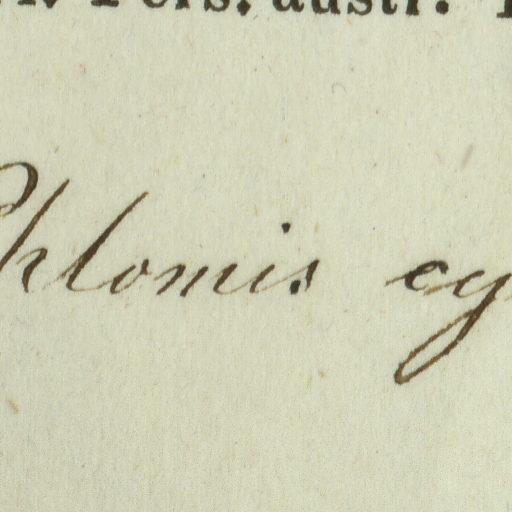 Pers. austr.
Phlomis cy